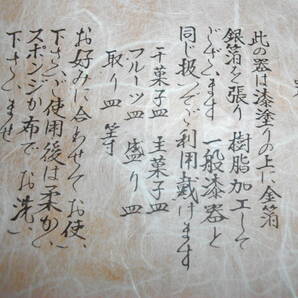 此の器は漆塗りの上に金箔
銀箔を張り 樹脂加工して
ございます 一般漆器と
同じ扱いでご利用戴けます
干菓子皿 主菓子皿
フルーツ皿 盛り皿
取り皿 等
お好みに合わせてお使い
下さい ご使用後は柔かい
スポンジか布でお洗い
下さいませ